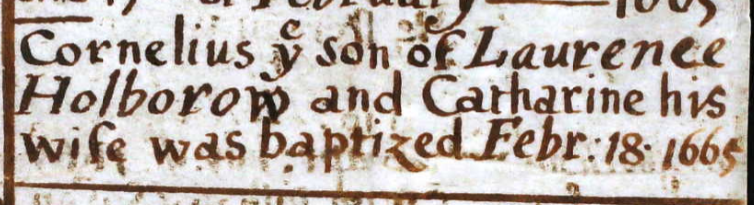 February 1665
Cornelius yͤ son of Laurence
Holborow and Catharine his
wife was baptized Febr: 18. 1665